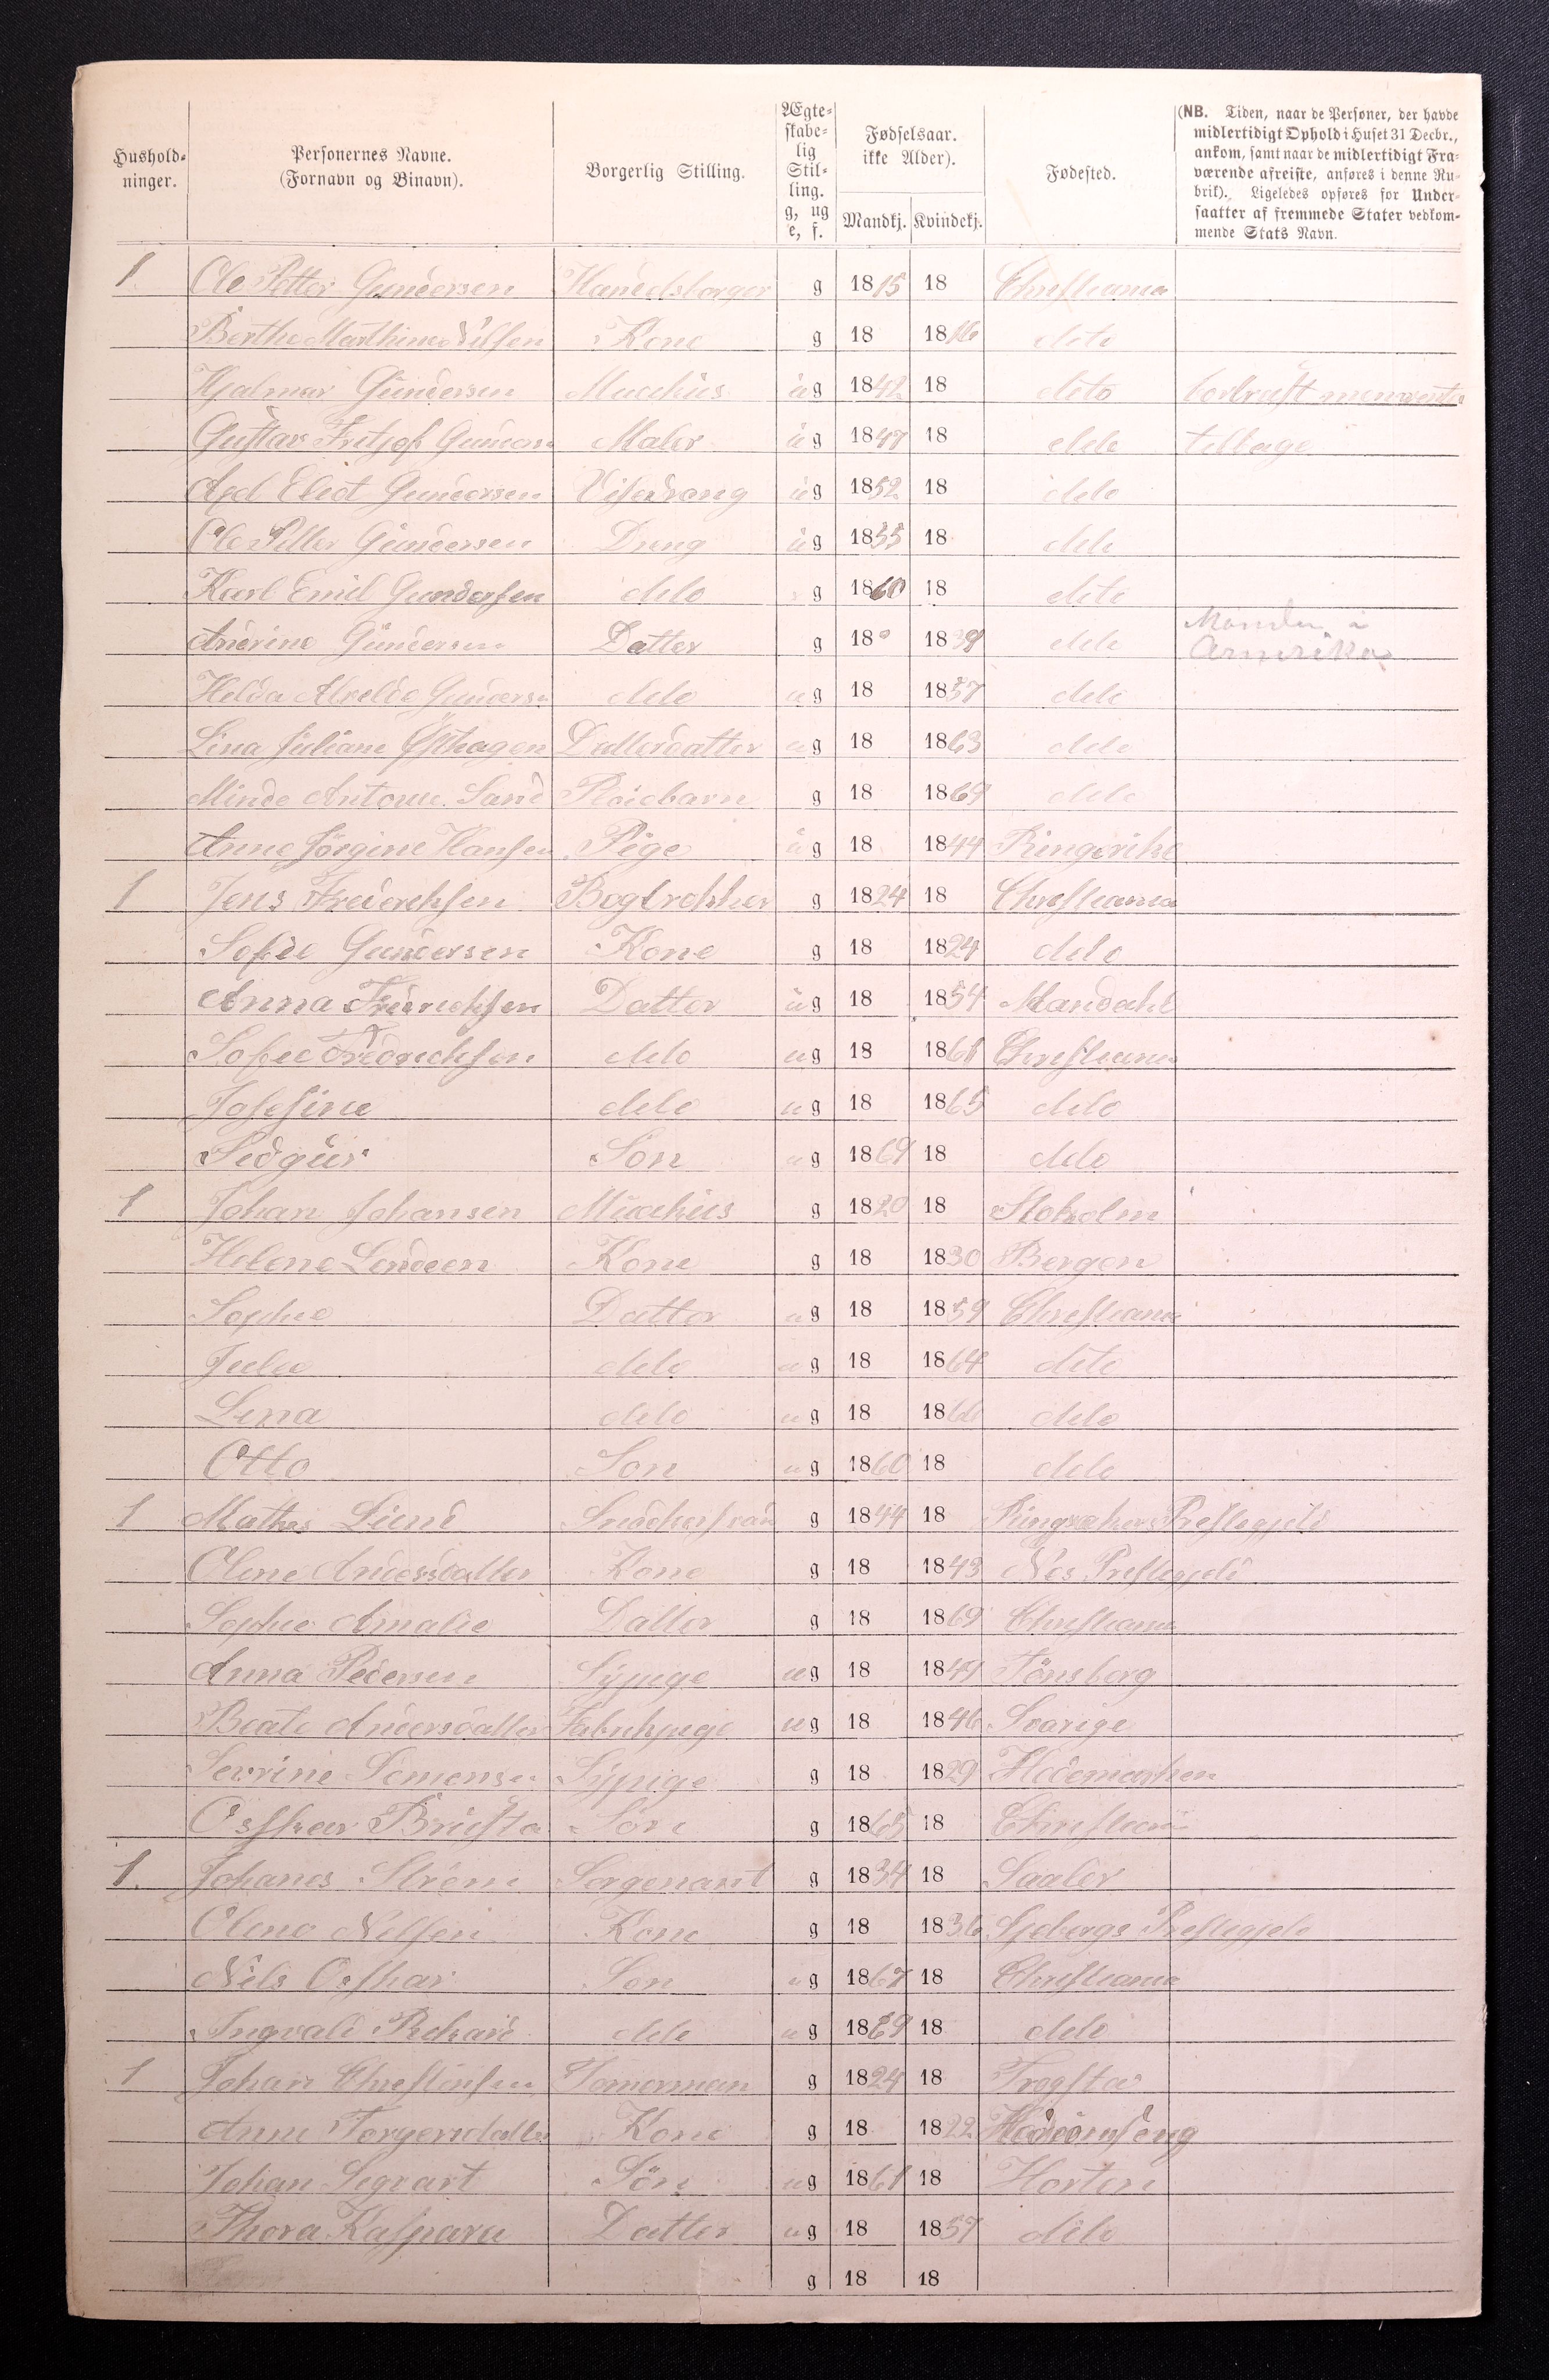 Hushold-
ninger.
Personernes Navne.
(Fornavn og Binavn).
Borgerlig Stilling.
Ægte-
skabe-
lig
Stil-
ling.
g, ug
e, f.
Fødselsaar.
ikke Alder).
Mandkj. Kvindekj.
Fødested.
(NB. Tiden, naar de Personer, der havde
midlertidigt Ophold i Huset 31 Decbr.,
ankom, samt naar de midlertidigt Fra-
værende afreiste, anføres i denne Ru-
brik). Ligeledes opføres for Under-
saatter af fremmede Stater vedkom-
mende Stats Navn.
1. Ole Petter Gundersen Handelsborger g 1815 18 Christiania
Berthe Marthine Nilsen Kone g 18 1816 dito
Hjalmar Gundersen Muukus ug 1842 18 dito bortreist men ventes
Gustav Fritjof Gunders Maler ug 1847 18 dito tilbage
Axel Eliot Gundersen Viserdrang ug 1852 18 dito
Ole Petter Gundersen Dreng ug 1855 18 dito
Karl Emil Gundersen dito g 1860 18 dito
Andrine Gundersen Datter g 18 1839 dito Manden i Amerika
Helda Gunders dito ug 18 1857 dito
Lina Juliane Østhagen Datterdatter ug 18 1863 dito
Minde Antonie Sand Pleiebarn g 18 1869 dito
Anne Jørgine Hansen Pige ug 18 1844 Ringerike
1 Jens Fredrichsen Bogtrekker g 1824 18 Christiania
Sofie Gundersen Kone g 18 1824 dito
Anna Fredrichsen Datter ug 18 1854 Mandahl
Sofie Fredrichsen dito ug 18 1861 Christiania
Josefine dito ug 18 1865 dito
Søn ug 1869 18 dito
1 Johan Johansen Muukus g 1820 18 Stokolm
Helene Lindeen Kone g 18 1830 Bergen
Sophie Datter ug 18 1859 Christiania
Julie dito ug 18 1864 dito
Lina dito ug 18 1866 dito
Otto Søn ug 1860 18 dito
1 Mathis Lund Snedkersvend g 1844 18 Ringsaker Prestegjeld
Oline Andersdatter Kone g 18 1843 Nes Prestegjeld
Sophie Amalie Datter g 18 1869 Christiania
Anna Pedersen Sypige ug 18 1849 Tønsborg
Beate Andersdatter Fabrikpige ug 18 1846 Svarige
Sevrine Simensen Sypige g 18 1829 Hedemarken
Osskar Brusta Søn g 1865 18 Christiania
1. Johanes Strøm Sergenant g 1834 18 Saaler
Olene Nilsen Kone g 18 1836 Prestegjeld
Nils Osskar Søn ug 1867 18 Christiania
Ingvald Rickard dito ug 1869 18 dito
1 Johan Christinsen Tømerman g 1824 18 Trogstad
Anne Torgersdatter Kone g 18 1822
Johan Segvart Søn ug 1861 18 Horten
Thora Kaspara Datter ug 18 1857 dito
g 18 18